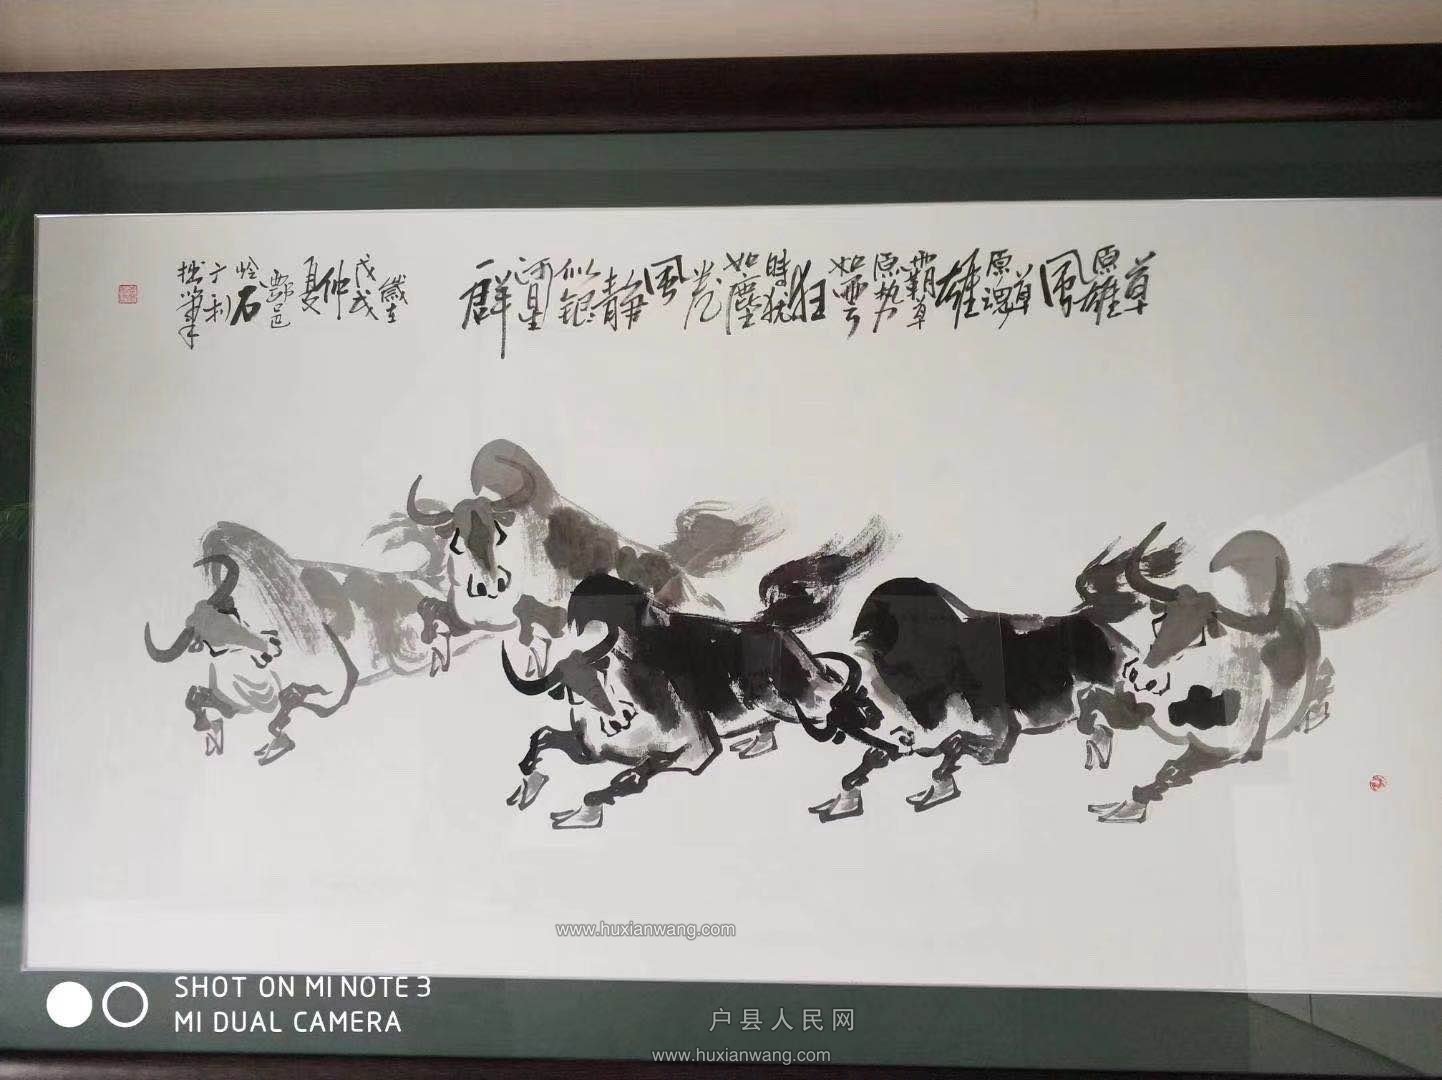 草原雄風草原魂雄霸草原势如雲狂時犹如塵卷風静似银河星一群
歲在戊戌仲夏鄠邑怡石广利拙筆
www.huxianwang.com
SHOT ON MI NOTE 3
MI DUAL CAMERA
户县人民网
www.huxianwang.com